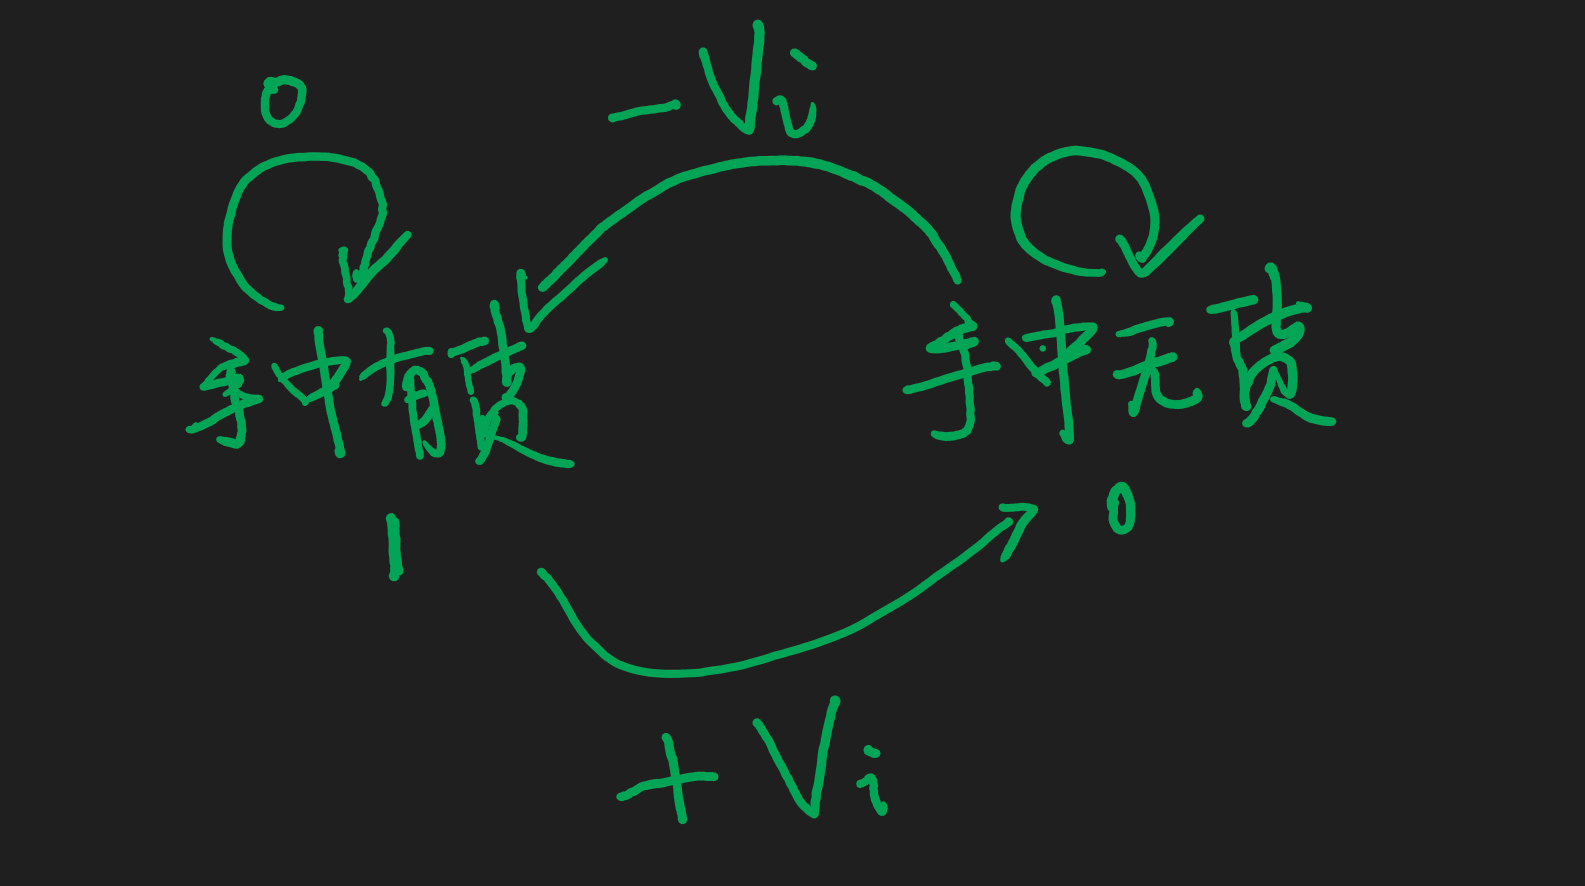 0
-Vi
手中有货
手中无货
1
0
+Vi